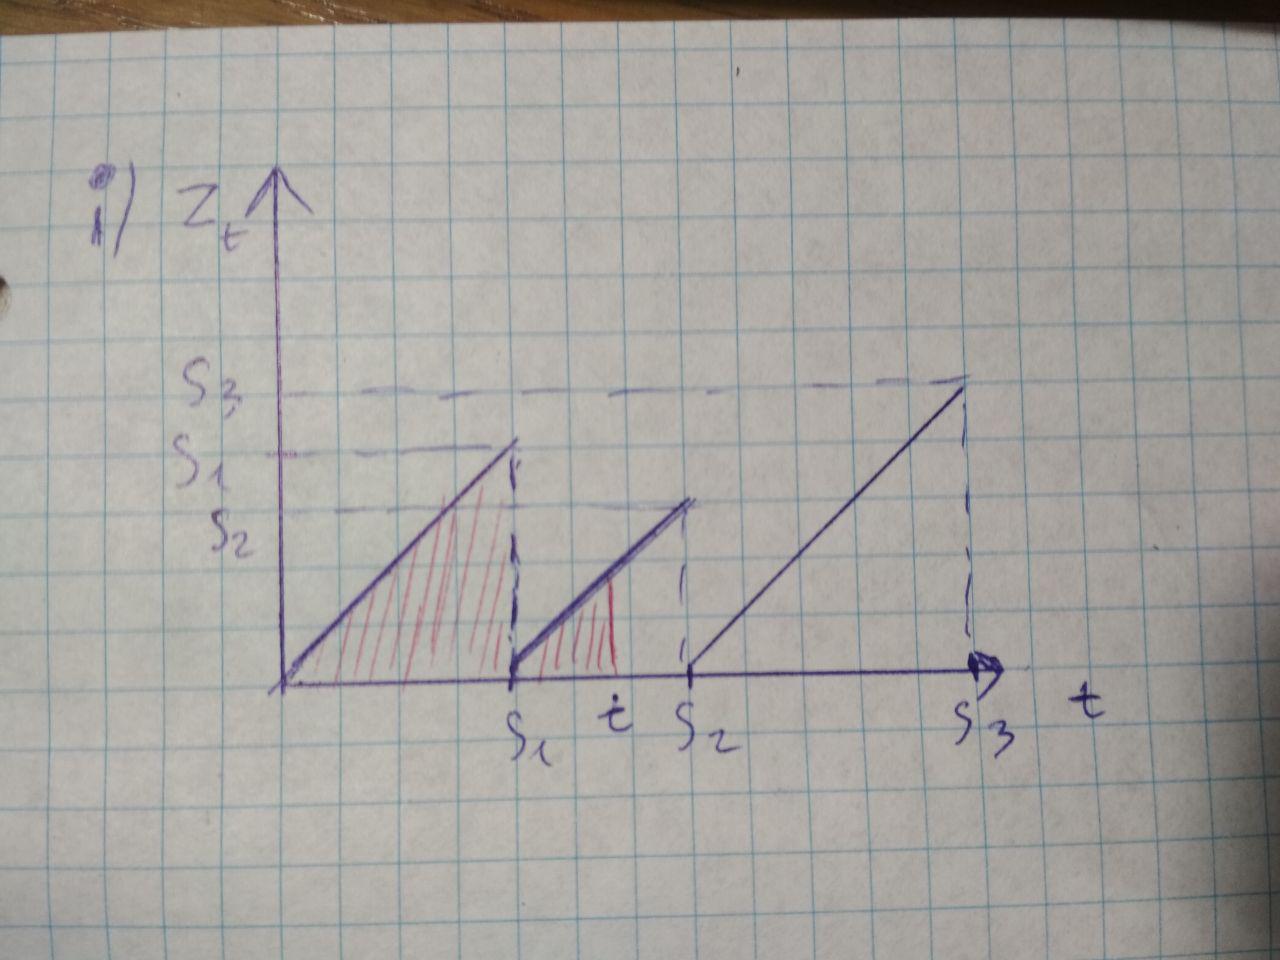 i) Z_t
S_3
S_1
S_2
S_1 t S_2 S_3 t